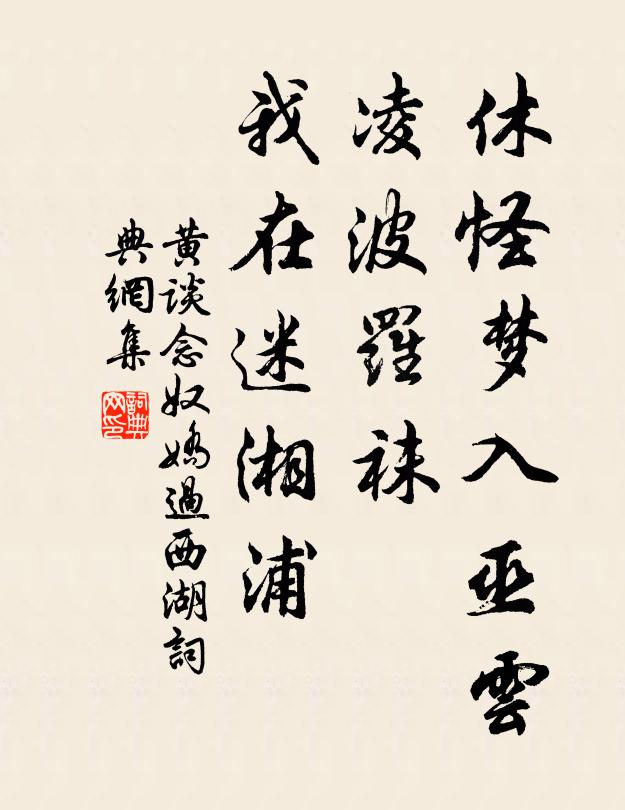 休怪梦入巫雲
凌波羅袜
我在迷湘浦
黄谈念奴嬌過西湖詞
典網集
詞典網印